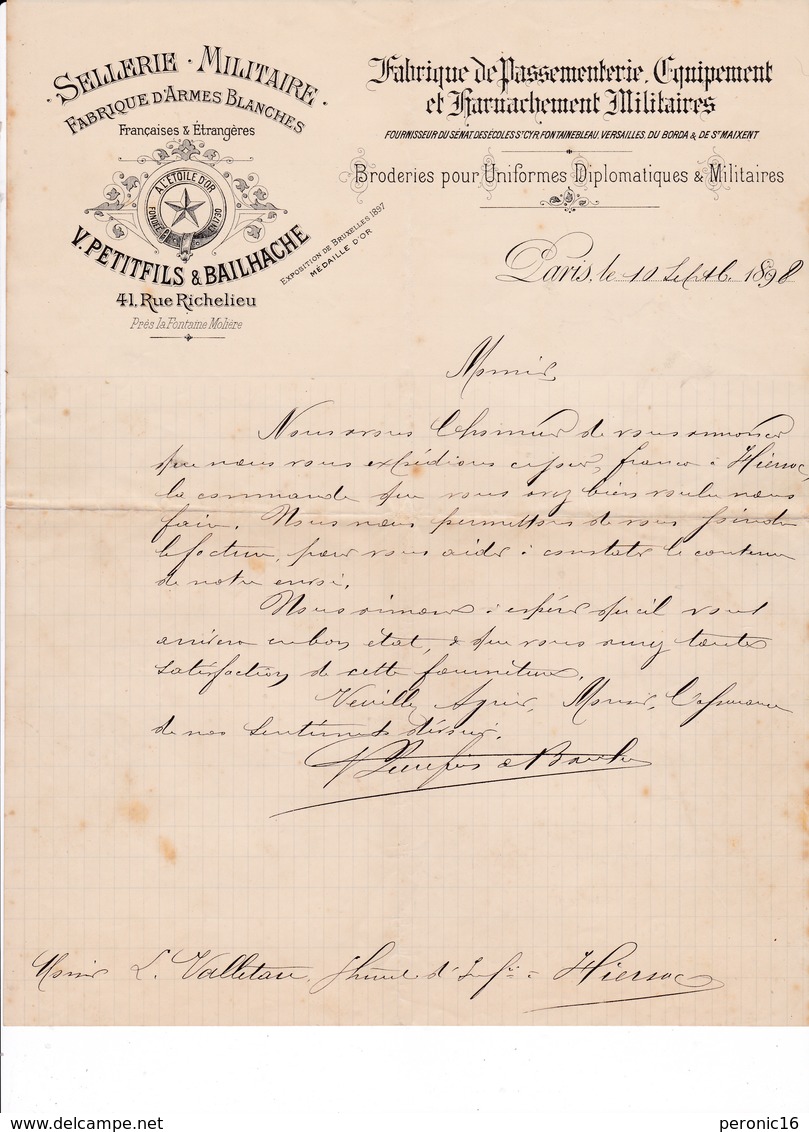 Sellerie · Militaire ·
Fabrique d'Armes Blanches
Françaises & Étrangères
A L'ÉTOILE D'OR
FONDÉE EN 1730
V. PETITFILS & BAILHACHE
41, Rue Richelieu
Près la Fontaine Molière
EXPOSITION DE BRUXELLES 1897
MÉDAILLE D'OR
Fabrique de Passementerie, Equipement
et Harnachement Militaires
FOURNISSEUR DU SÉNAT DES ÉCOLES St CYR, FONTAINEBLEAU, VERSAILLES, DU BORDA & DE St MAIXENT
Broderies pour Uniformes Diplomatiques & Militaires
Paris, le 10 Septb. 1898
Monsieur
Nous avons l'honneur de vous annoncer
que nous vous expédions ce jour, franco à Hiersac,
la commande que vous avez bien voulu nous
faire. Nous nous permettons de vous joindre
la facture, pour vous aider à constater le contenu
de notre envoi.
Nous aimons à espérer qu'il vous
arrivera en bon état, & que vous aurez toute
satisfaction de cette fourniture.
Veuillez Agréer, Monsieur, l'assurance
de nos sentiments dévoués.
V Petitfils & Bailhache
Monsieur L. Valleteau, d'Infie à Hiersac